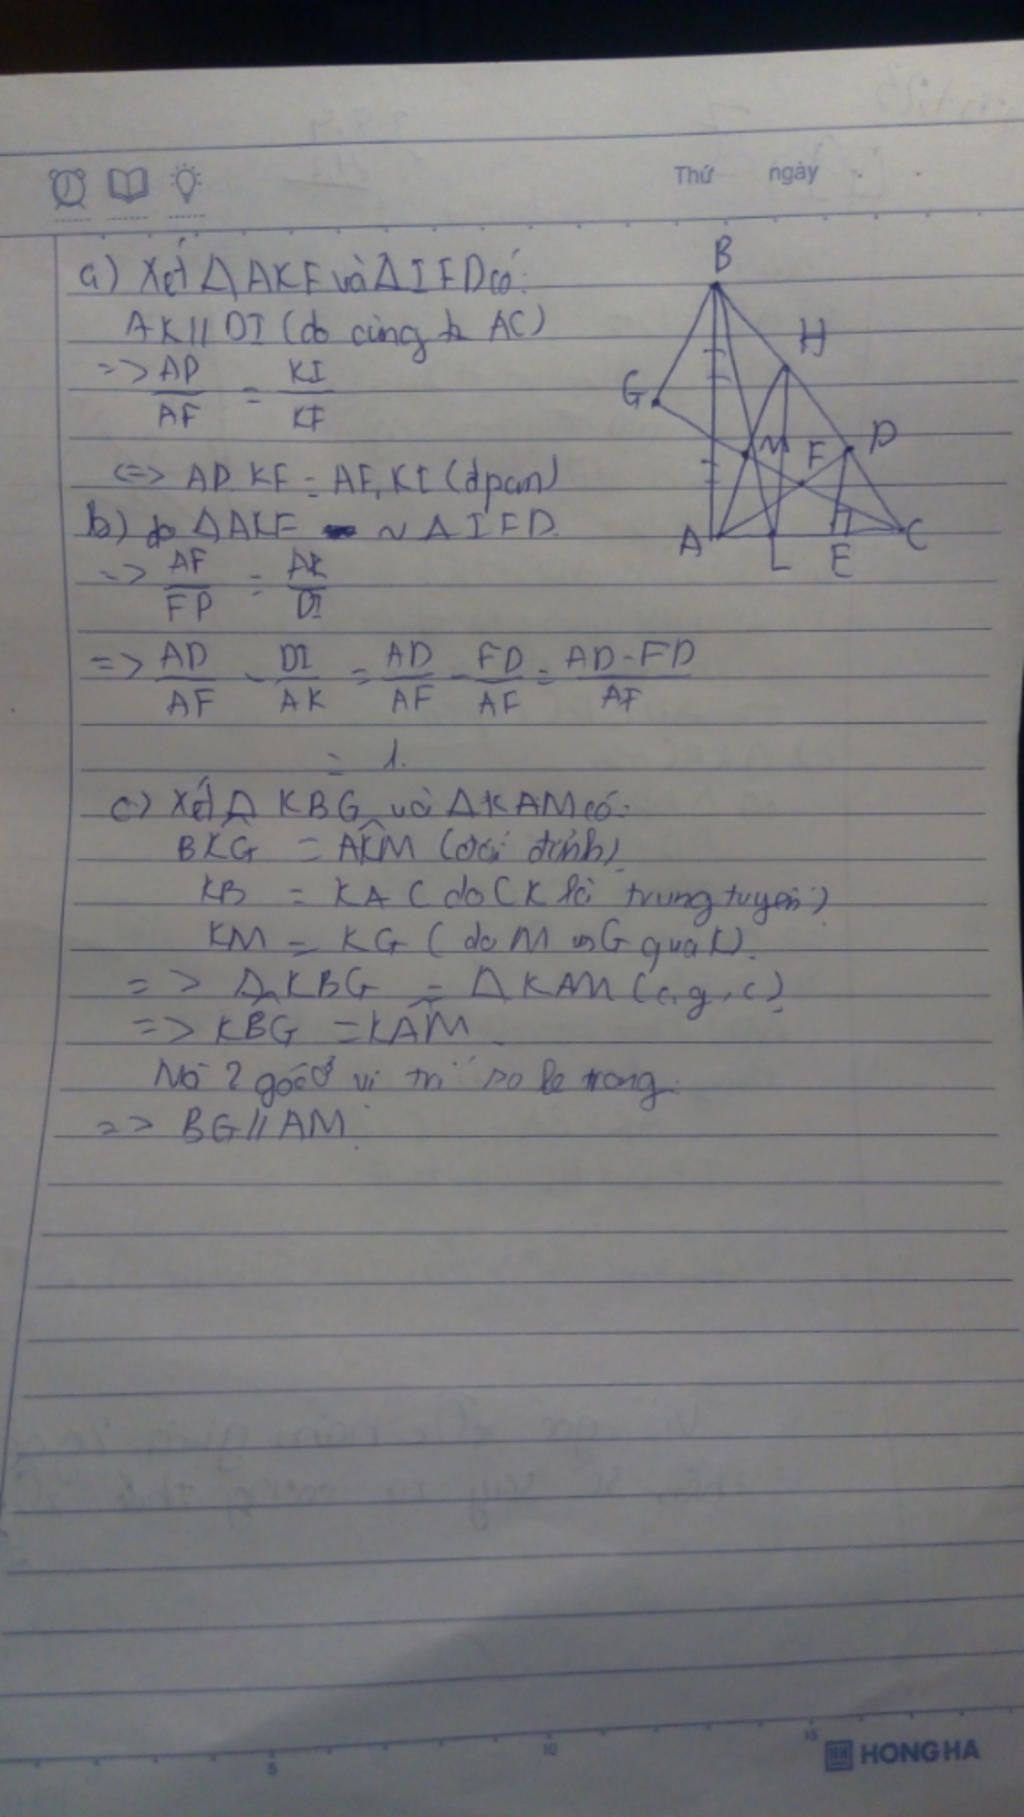 Thứ ngày
a) Xét Δ AKF và Δ IFD có:
AK // DI (do cùng ⊥ AC)
=> AD/AF = KI/KF
<=> AD.KF = AF.KI (đpcm)
b) do Δ AKF ~ Δ IFD
=> AF/FD = AK/DI
=> AD/AF - DI/AK = AD/AF - FD/AF = AD-FD/AF
= 1.
c) Xét Δ KBG và Δ KAM có:
BKG = AKM (đối đỉnh)
KB = KA (do CK là trung tuyến)
KM = KG (do M G qua K).
=> Δ KBG = Δ KAM (c.g.c)
=> KBG = KAM
Mà 2 góc ở vị trí so le trong.
=> BG // AM.
B
H
G
M
F
D
A
L
E
C
5 10 15
HONG HA